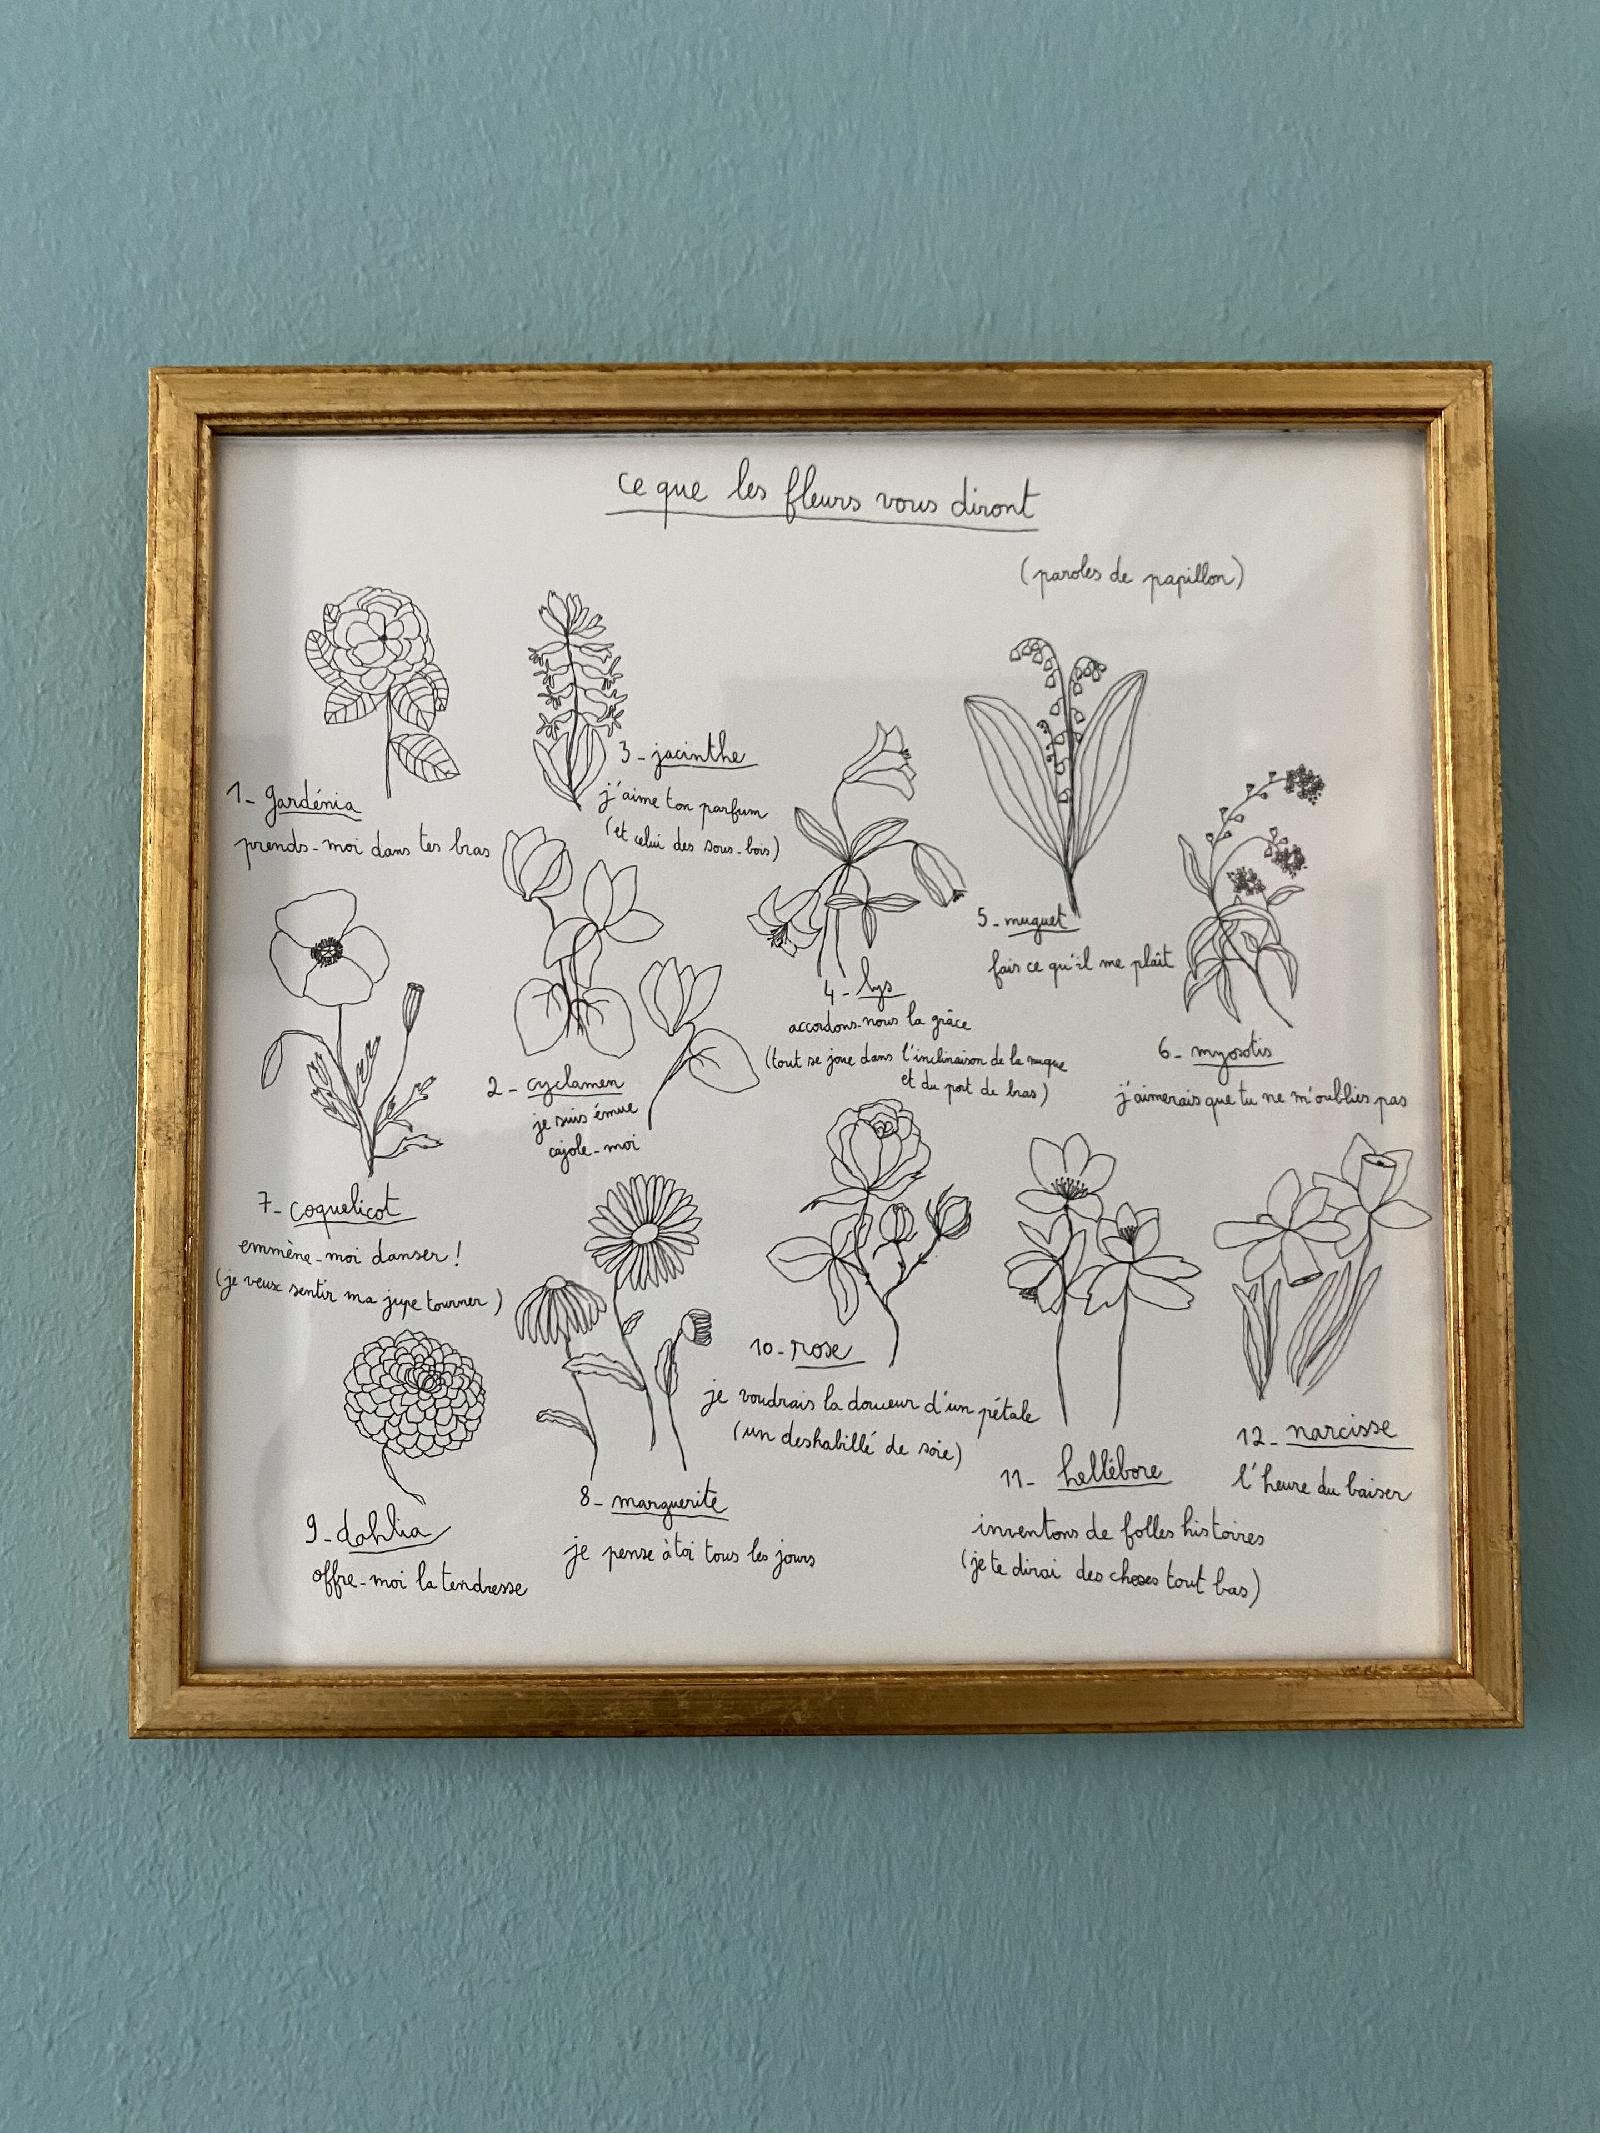 ce que les fleurs vous diront
(paroles de papillon)
1- gardénia
prends-moi dans tes bras
2- cyclamen
je suis émue
cajole-moi
3- jacinthe
j'aime ton parfum
(et celui des sous-bois)
4- lys
accordons-nous la grâce
(tout se joue dans l'inclinaison de la nuque
et du port de bras)
5- muguet
fais ce qu'il me plaît
6- myosotis
j'aimerais que tu ne m'oublies pas
7- coquelicot
emmène-moi danser !
(je veux sentir ma jupe tourner)
8- marguerite
je pense à toi tous les jours
9- dahlia
offre-moi la tendresse
10- rose
je voudrais la douceur d'un pétale
(un deshabillé de soie)
11- hellébore
inventons de folles histoires
(je te dirai des choses tout bas)
12- narcisse
l'heure du baiser